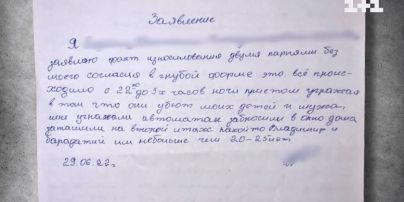 1+1
Заявление
Я
заявляю факт изнасилования двумя парнями без
моего согласия в грубой форме это всё проис-
ходило с 22⁰⁰ до 3х часов ночи пристом угражая
в том что они убют моих детей и мужа,
мне угражали автоматам забросили в окно дома
затащили на второй итаж какой то Владимир и
барадатий им небольше чем 20-25лет.
29.06.22г